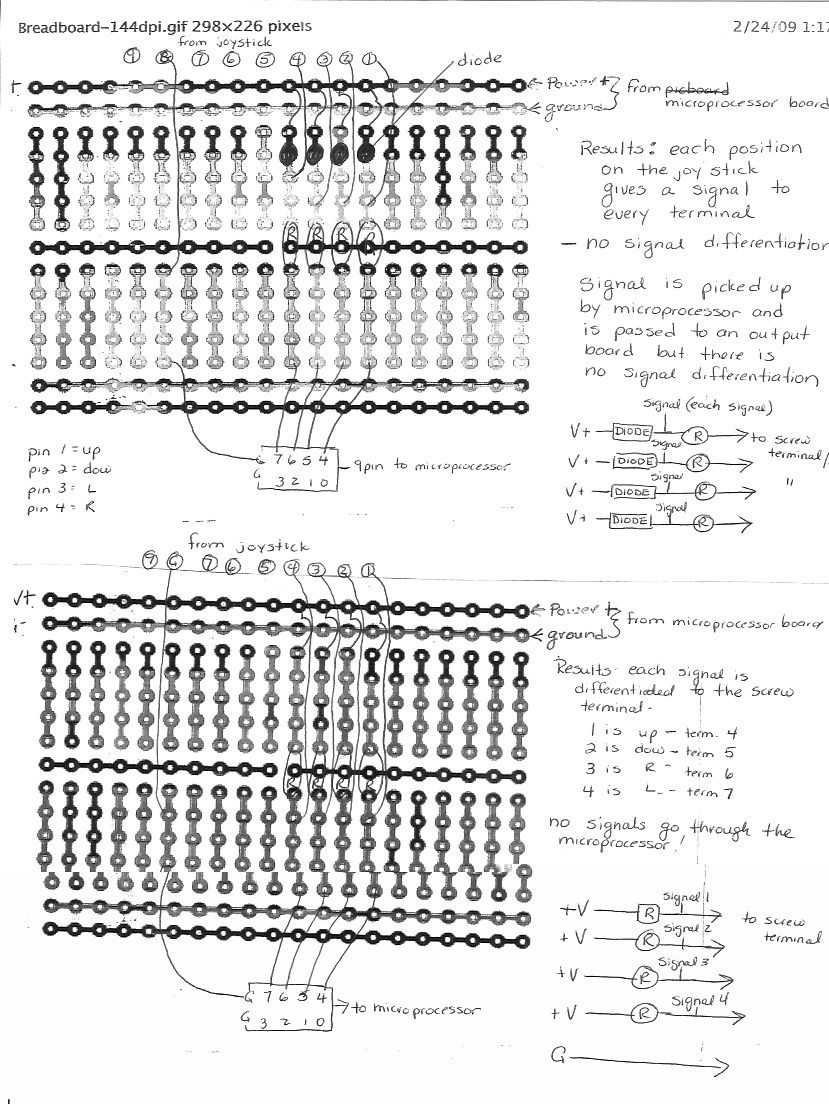 Breadboard-144dpi.gif 298×226 pixels
2/24/09 1:17
from joystick
9 8 7 6 5 4 3 2 1
diode
+
← Power +
← ground
from picboard
microprocessor board
Results: each position
on the joystick
gives a signal to
every terminal
— no signal differentiation
Signal is picked up
by microprocessor and
is passed to an output
board but there is
no signal differentiation
R R R R
signal (each signal)
V+ DIODE R → to screw
terminal
V+ DIODE signal R
V+ DIODE signal R
"
V+ DIODE signal R
pin 1 = up
pin 2 = dow
pin 3 = L
pin 4 = R
G 7 6 5 4
G 3 2 1 0
9pin to microprocessor
from joystick
9 G 7 6 5 4 3 2 1
V+
← Power +
← ground
from microprocessor board
Results - each signal is
differentiaded to the screw
terminal -
1 is up - term. 4
2 is dow - term 5
3 is R - term 6
4 is L - term 7
no signals go through the
microprocessor!
R R R R
+V R Signal 1
to screw
terminal
+V R Signal 2
+V R Signal 3
+V R Signal 4
G
G 7 6 5 4
G 3 2 1 0
→ to microprocessor